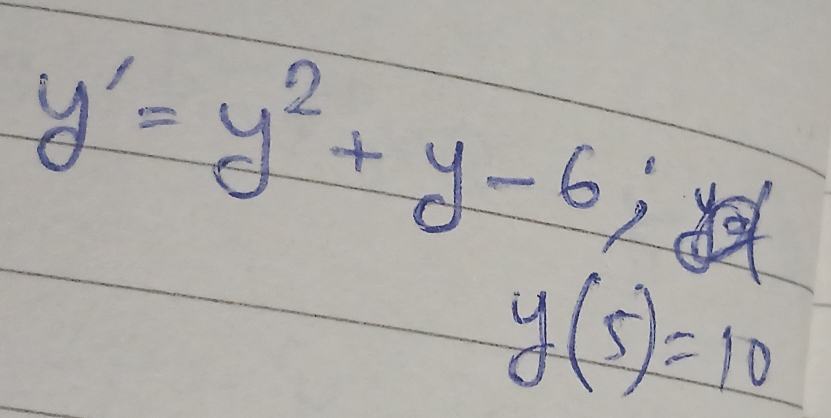 y' = y² + y - 6;
y(5) = 10